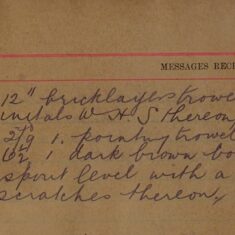 MESSAGES RECE
12" bricklayers trowel
initials W. H. S thereon,
1. pointing trowel
1 dark brown bo
spirit level with a
scratches thereon,